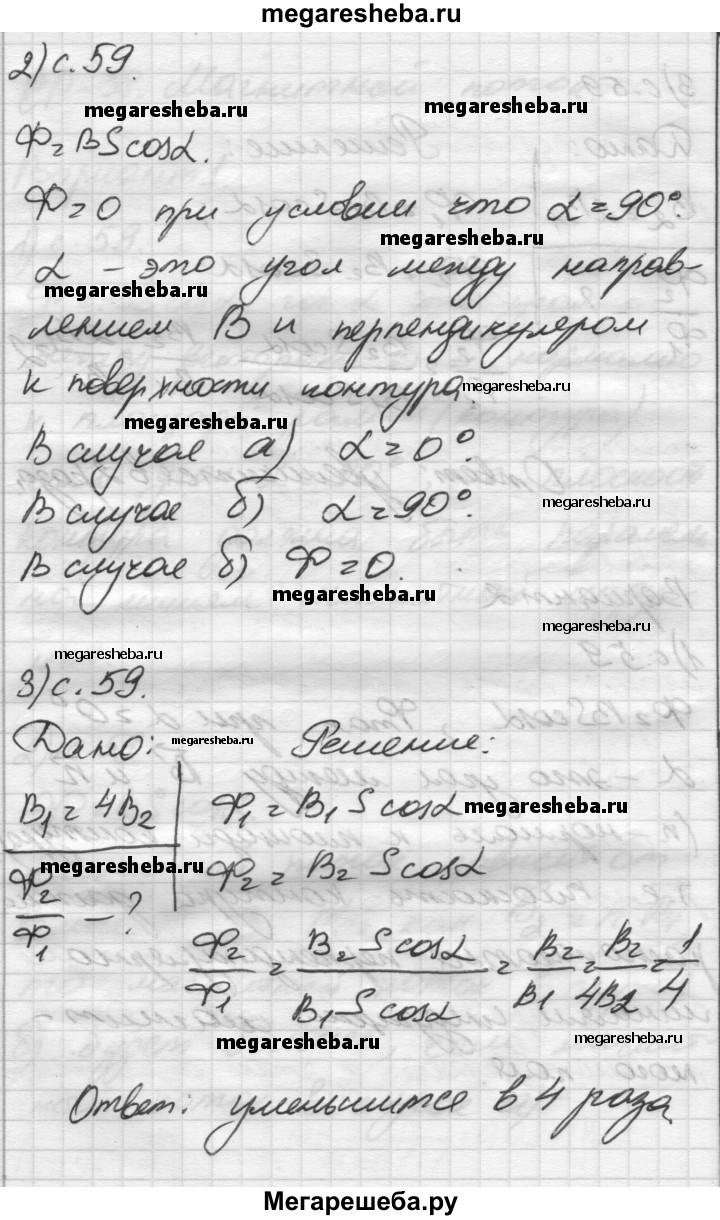 megaresheba.ru
2) с. 59.
megaresheba.ru megaresheba.ru
Ф = BS cosα.
Ф = 0 при условии что α = 90°.
megaresheba.ru
α – это угол между направ-
megaresheba.ru
лением B и перпендикулером
к поверхности контура.
megaresheba.ru
megaresheba.ru
В случае а) α = 0°.
В случае б) α = 90°.
megaresheba.ru
В случае б) Ф = 0.
megaresheba.ru
megaresheba.ru
megaresheba.ru
3) с. 59.
Дано: megaresheba.ru Решение:
B₁ = 4B₂ Ф₁ = B₁ S cosα megaresheba.ru
megaresheba.ru
Ф₂/Ф₁ – ? Ф₂ = B₂ S cosα
Ф₂/Ф₁ = B₂ S cosα/B₁ S cosα = B₂/B₁ = B₂/4B₂ = 1/4
megaresheba.ru megaresheba.ru
Ответ: уменьшится в 4 раза
Мегарешеба.ру